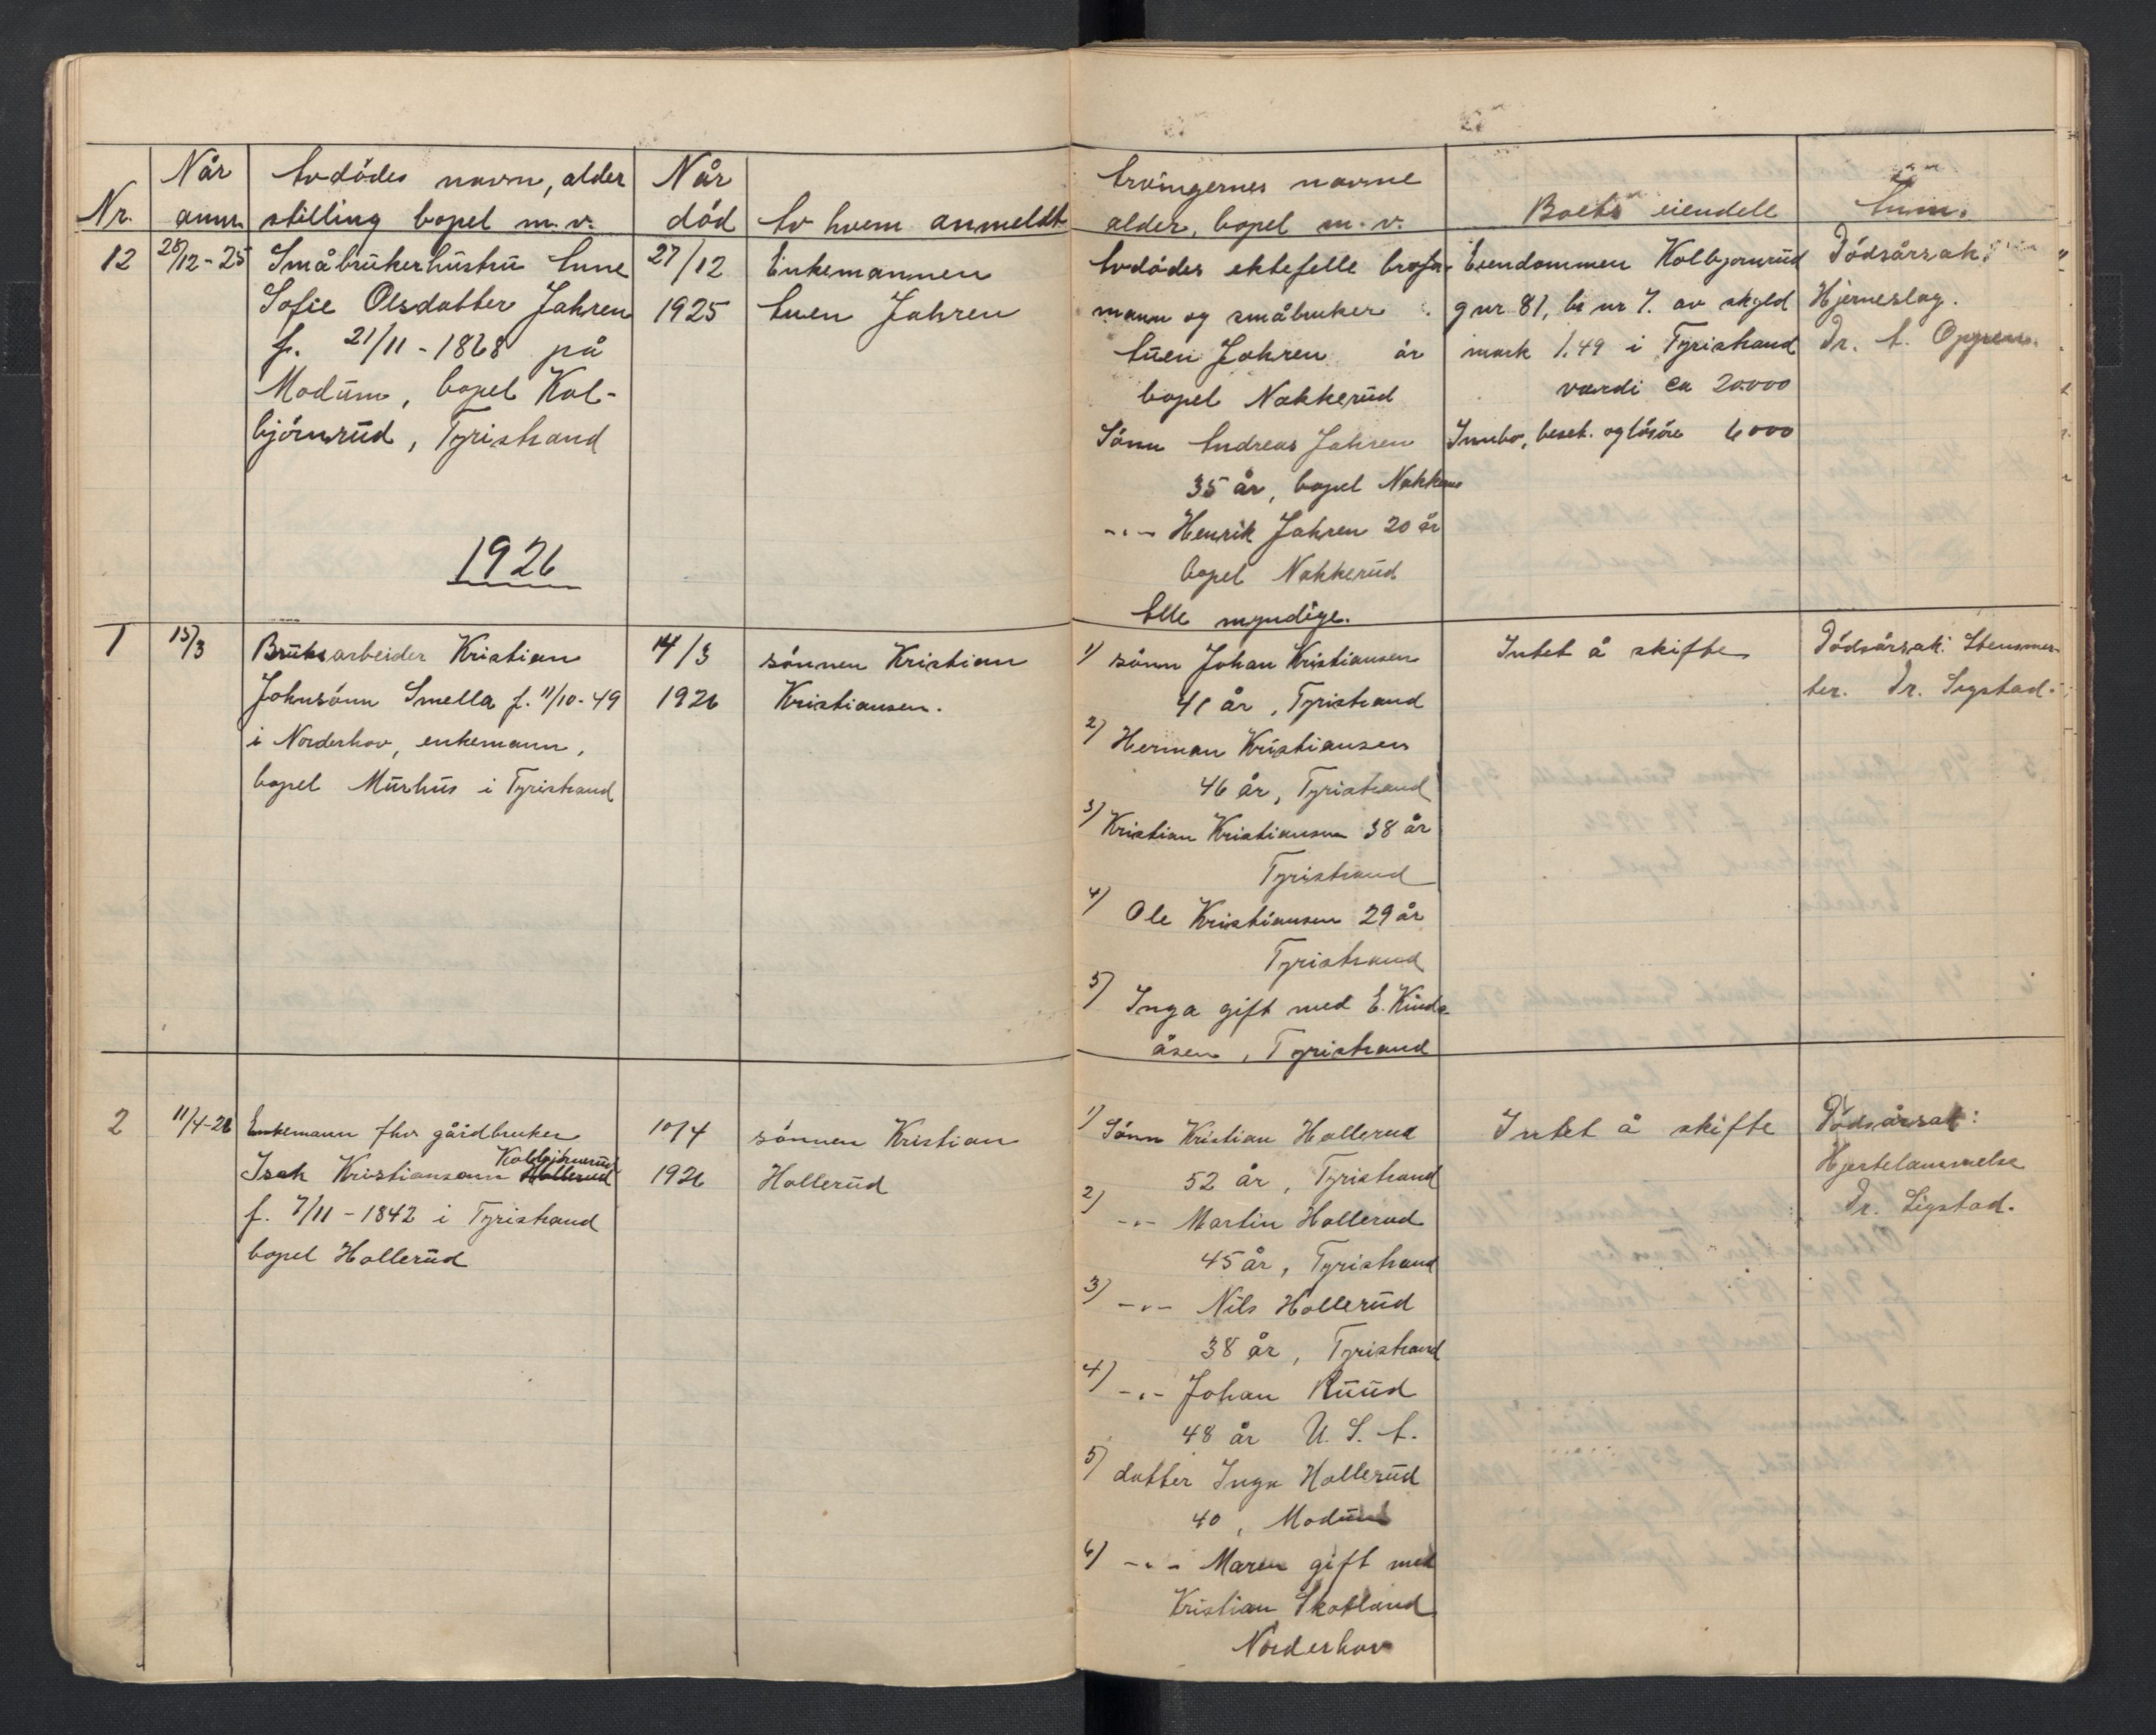 Nr.
Når
anm.
Avdödes navn, alder
stilling bopel m.v.
Når
död
Av hvem anmeldt
Arvingernes navne
alder, bopel m.v.
Boets eiendele
Anm.
12
28/12-25
Småbrukerhustru Anne
Sofie Olsdatter Jahren
f. 21/11-1868 på
Modum, bopel Kol-
björnrud, Tyristrand
27/12
1925
Enkemannen
Auen Jahren
Avdödes ektefelle
mann og småbruker
Auen Jahren år
bopel Nakkerud
Sönn Andreas Jahren
35 år, bopel Nakkerud
-"- Henrik Jahren 20 år
bopel Nakkerud
Alle myndige.
Eiendommen Kolbjornrud
gnr 81, br nr 7. av skyld
mark 1.49 i Tyristrand
værdi ca 20000
Innbo, besek. og lösöre 6000
Dödsårsak:
Hjerneslag.
Dr. A. Oppen.
1926
1
15/3
Bruksarbeider Kristian
Johnsönn Smella f. 11/10-49
i Norderhov, enkemann,
bopel Murhus i Tyristrand
14/3
1926
sönnen Kristian
Kristiansen.
1) sönn Johan Kristiansen
41 år, Tyristrand
2) Herman Kristiansen
46 år, Tyristrand
3) Kristian Kristiansen 38 år
Tyristrand
4) Ole Kristiansen 29 år
Tyristrand
5) Inga gift med E. Kinds-
åsen, Tyristrand
Intet å skifte
Dödsårsak:
Dr. Sigstad.
2
11/4-26
Enkemann fhv gårdbruker
Kolbjörnrud
Isak Kristiansönn Hollerud
f. 7/11-1842 i Tyristrand
bopel Hollerud
10/4
1926
sönnen Kristian
Hollerud
1) Sönn Kristian Hollerud
52 år, Tyristrand
2) -"- Martin Hollerud
45 år, Tyristrand
3) -"- Nils Hollerud
38 år, Tyristrand
4) -"- Johan Ruud
48 år U. S. A.
5) datter Inga Hollerud
40, Modum
6) -"- Maren gift med
Kristian Skotland
Norderhov
Intet å skifte
Dödsårsak:
Hjertelammelse
Dr. Sigstad.